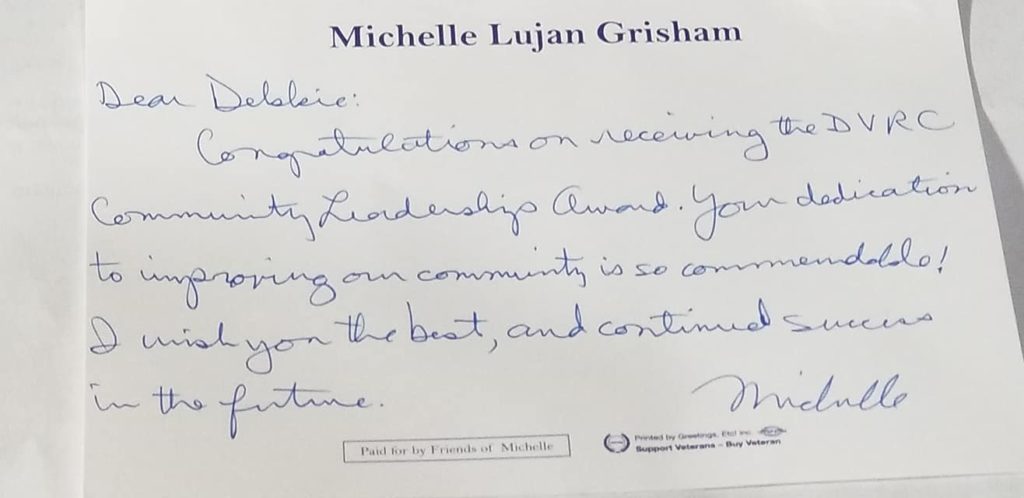 Michelle Lujan Grisham
Dear Debbie:
Congratulations on receiving the DVRC
Community Leadership Award. Your dedication
to improving our community is so commendable!
I wish you the best, and continued success
in the future.
Michelle
Paid for by Friends of Michelle
Printed by Greetings, Etc! Inc.
Support Veterans – Buy Veteran